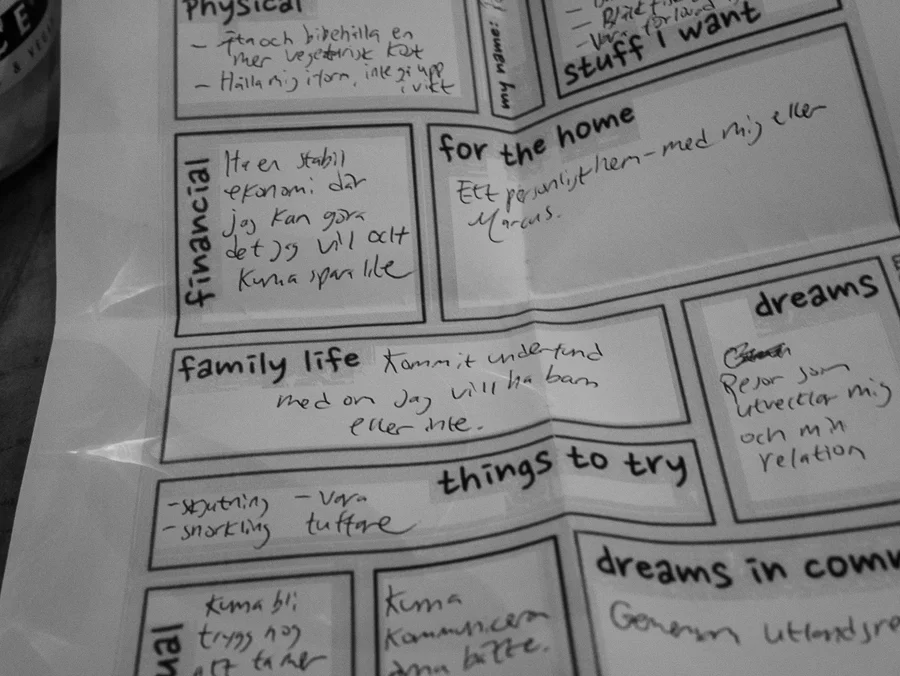 physical
- Äta och bibehålla en
mer vegetarisk kost
- Hålla mig i form, inte gå upp
i vikt
my name:
stuff I want
financial
Ha en stabil
ekonomi där
jag kan göra
det jag vill och
kunna spara lite
for the home
Ett personligt hem - med mig eller
Marcus.
dreams
Resor som
utvecklar mig
och min
relation
family life
Kommit underfund
med om jag vill ha barn
eller inte.
things to try
- skjutning - Vara
- snorkling tuffare
Kunna bli
trygg nog
att ta mer
Kunna
kommunicera
ännu bättre.
dreams in comm
Gemensam utlandsre